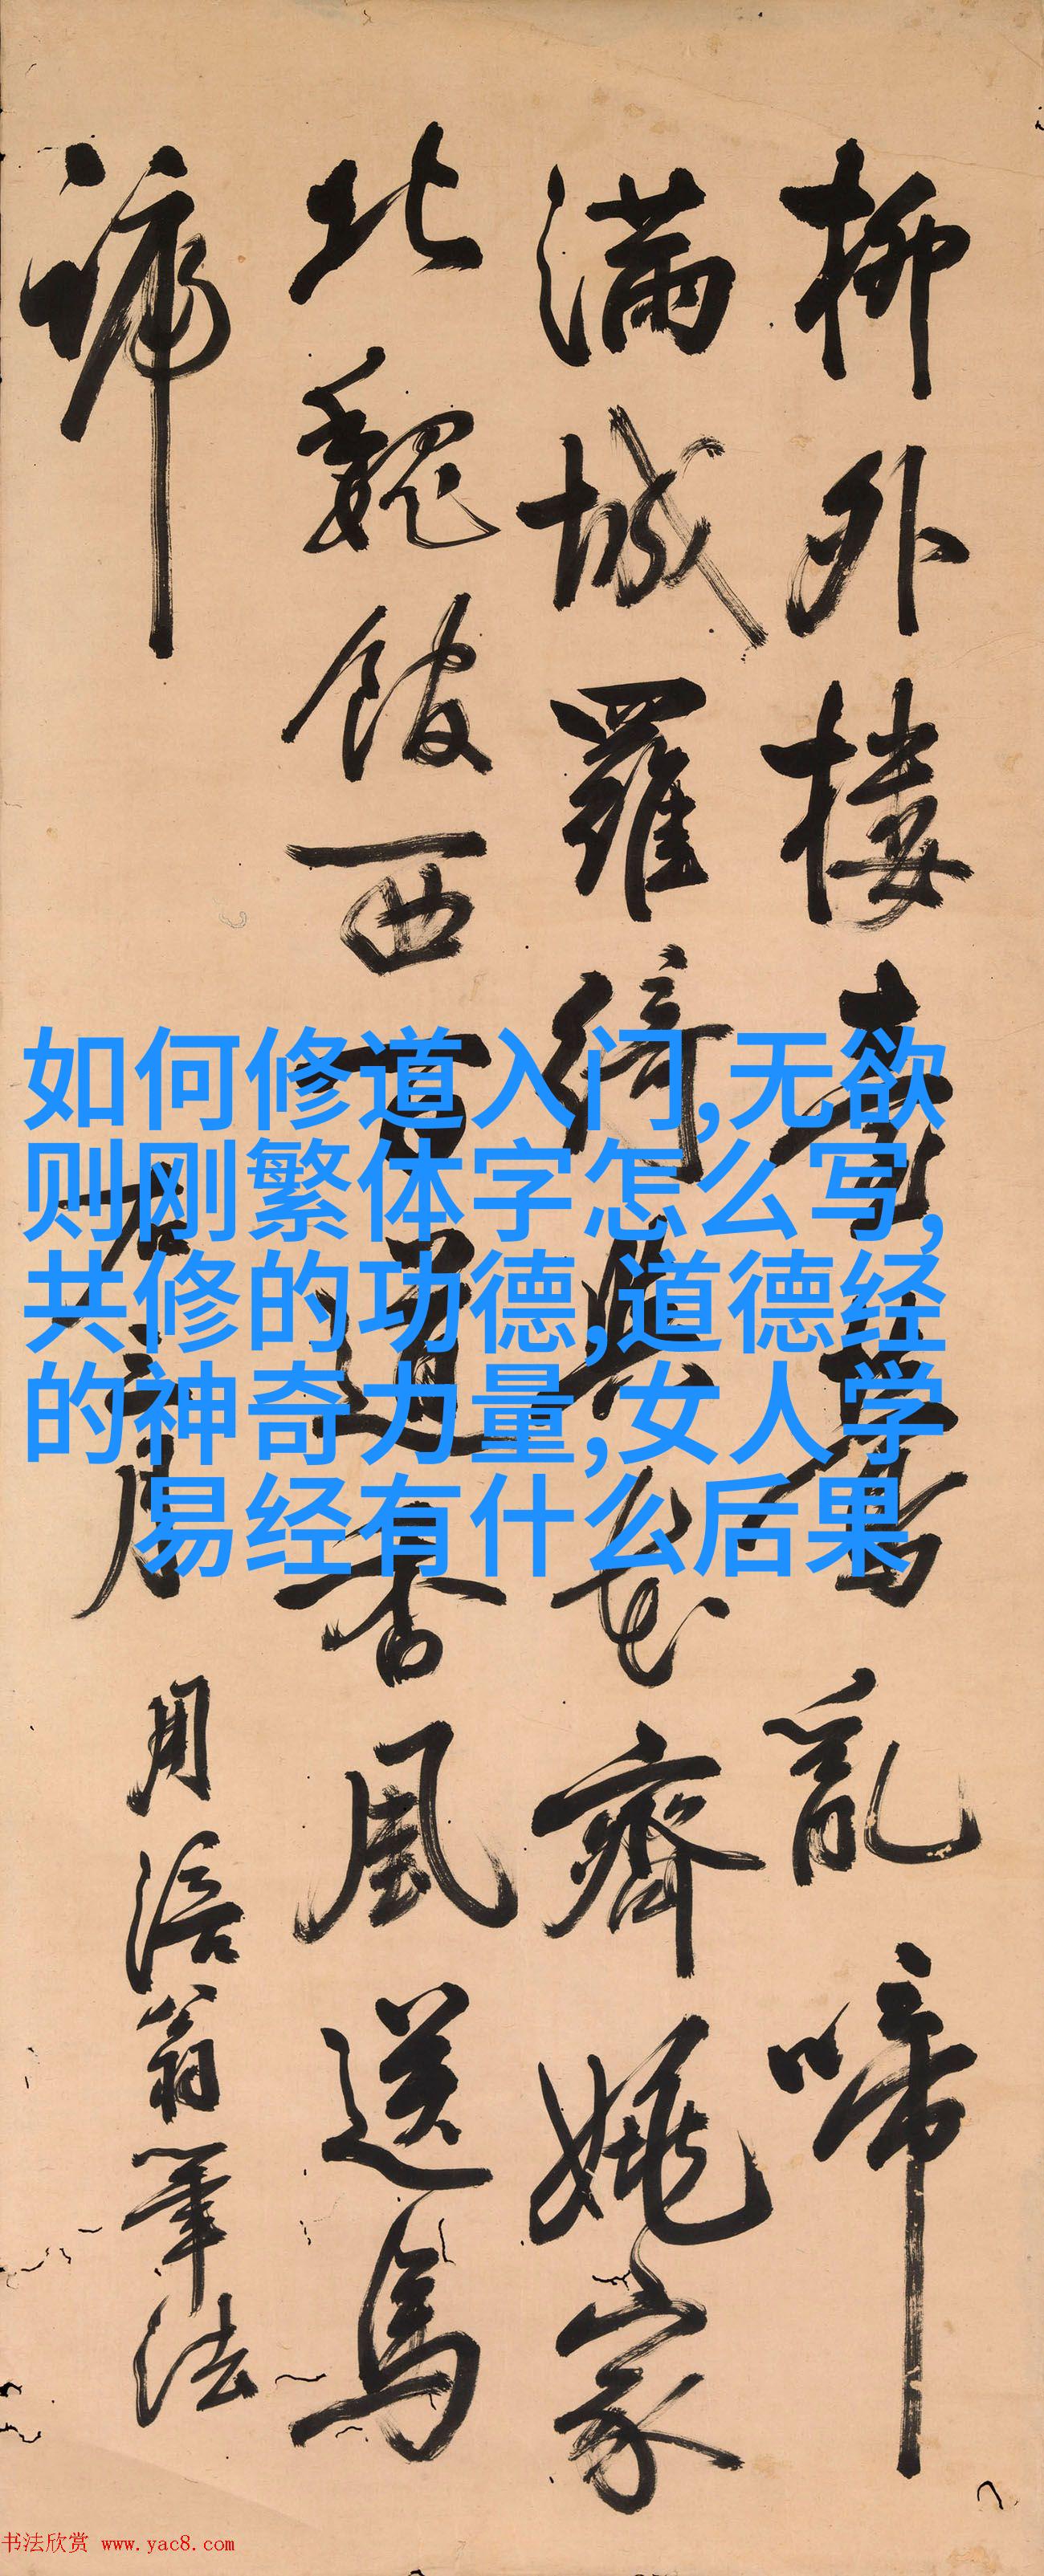 柳外樓臺鶯亂啼
滿城羅綺與花齊姚家
北魏館西道香風送馬
蹄
用涪翁筆法
如何修道入门,无欲
则刚繁体字怎么写,
共修的功德,道德经
的神奇力量,女人学
易经有什么后果
书法欣赏 www.yac8.com